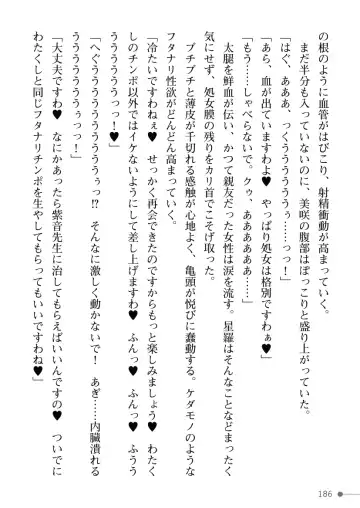 の根のように血管がはびこり、射精衝動が高まっていく。
まだ半分も入っていないのに、美咲の腹部はぽっこりと盛り上がっていた。
「はぐ、あああ、つっくうううううぅ……っっ！」
「あら、血が出ていますわよ♥　やっぱり処女は格別ですわぁ♥」
「もう……しゃべらないで。クゥ、ああああああ」
太腿を鮮血が伝い、かつて親友だった女性は涙を流す。星羅はそんなことなどまったく
気にせず、処女膜の残りをカリ首でこそげ取った。
プチプチと薄皮が千切れる感触が心地よく、亀頭が悦びに蠢動する。ケダモノのような
フタナリ性欲がどんどん高まっていく。
「冷たいですわねぇ♥　せっかく再会できたのですからもっと楽しみましょう♥　わたく
しのチンポ以外ではイケないようにして差し上げますわ♥　ふんっ♥　ふんっ♥　ふうう
うううううっっ！♥」
「へぐうううううううううぅっ⁉　そんなに激しく動かないで！　あぎ……内臓潰れる
うううううぅっ！」
「大丈夫ですわ♥　なにかあったら紫音先生に治してもらえばいいんですの♥　ついでに
わたくしと同じフタナリチンポを生やしてもらってもいいですわね♥」
186